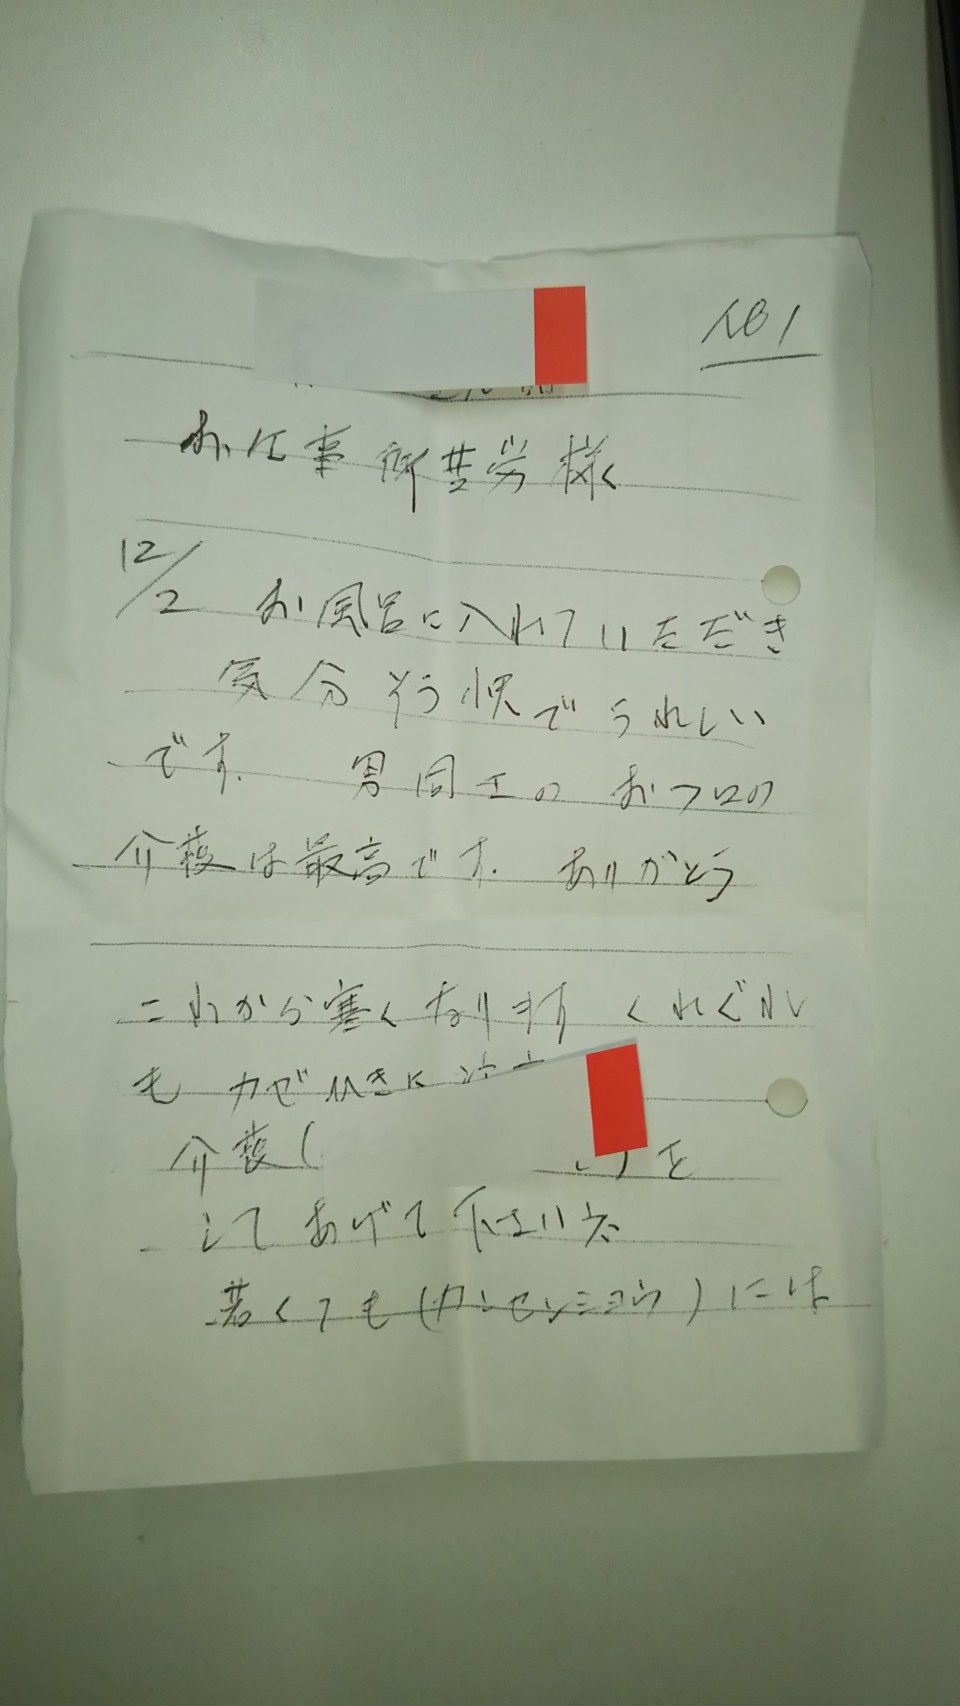 No 1
お仕事御苦労様
12/2 お風呂に入れていただき
気分そう快でうれしい
です. 男同士のおフロの
介護は最高です. ありがとう
これから寒くなります くれぐれ
も カゼひきに
介護( )を
してあげて下さいネ
若くても(カンセンショウ)には